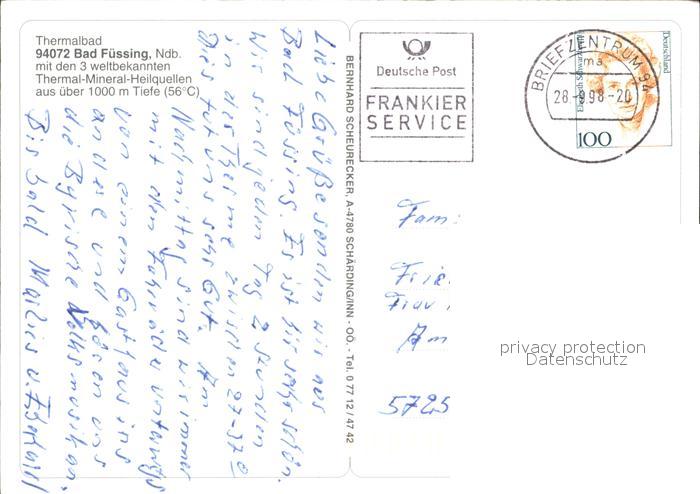 Thermalbad
94072 Bad Füssing, Ndb.
mit den 3 weltbekannten
Thermal-Mineral-Heilquellen
aus über 1000 m Tiefe (56°C)
Liebe Grüße senden wir aus
Bad Füssing. Es ist hir sehr schön.
Wir sind jeden Tag 2 stunden
in das Therme zwischen 27-37°
Dies tut uns sehr Gut. Am
Nachmittag sind wir immer
mit den Fahrräder unterwegs
von einem Gasthaus ins
andere und hören uns
die Byrische Volksmusik an.
Bis bald Marlies u. Ekehard
BERNHARD SCHEURECKER, A-4780 SCHÄRDING/INN - OÖ. - Tel. 0 77 12 / 47 42
Deutsche Post
FRANKIER
SERVICE
BRIEFZENTRUM 94
ma
28.-9.98-20
Deutschland
100
Fam.
Frau
Am
5725
privacy protection
Datenschutz